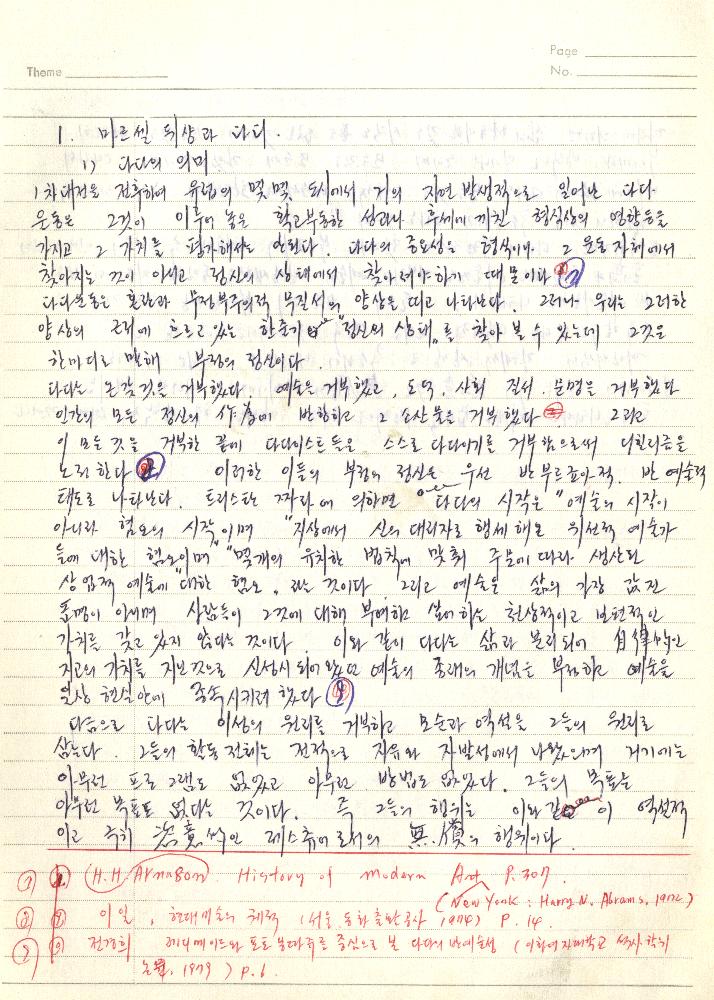 Theme
Page
No.
1. 마르셀 뒤샹과 다다.
1) 다다의 의미
1차대전을 전후하여 유럽의 몇몇 도시에서 거의 자연발생적으로 일어난 다다
운동은 그것이 이루어 놓은 확고부동한 성과나 후세에 끼친 형식상의 영향등을
가지고 그 가치를 평가해서는 안된다. 다다의 중요성은 형식이나 그 운동 자체에서
찾아지는 것이 아니고 정신의 상태에서 찾아져야 하기 때문이다 1)
다다운동은 혼란과 무정부주의적 무질서의 양상을 띠고 나타난다. 그러나 우리는 그러한
양상의 근저에 흐르고 있는 한줄기 "정신의 상태"를 찾아 볼 수 있는데 그것은
한마디로 말해 부정의 정신이다.
다다는 온갖것을 거부했다. 예술을 거부했고, 도덕, 사회 질서, 운명을 거부했다
인간의 모든 정신의 作為에 반항하고 그 소산물을 거부했다 그리고
이 모든 것을 거부한 끝에 다다이스트들은 스스로 다다이기를 거부함으로써 니힐리즘을
노정한다 2) 이러한 이들의 부정의 정신은 우선 반부르죠아적, 반예술적
태도로 나타난다. 트리스탄 짜라에 의하면 다다의 시작은 "예술의 시작이
아니라 혐오의 시작이며 "지상에서 신의 대리자로 행세해온 위선적 예술가
들에 대한 혐오이며" "몇개의 유치한 법칙에 맞춰 주문에 따라 생산된
상업적 예술에 대한 혐오" 라는 것이다. 그리고 예술은 삶의 가장 값진
표명이 아니며 사람들이 그것에 대해 부여하고 싶어하는 천상적이고 보편적인
가치를 갖고 있지 않다는 것이다. 이와 같이 다다는 삶과 분리되어 自律的인
지고의 가치를 지닌것으로 신성시 되어 왔던 예술의 종래의 개념을 부정하고 예술을
일상 현실안에 종속시키려 했다 3)
다음으로 다다는 이성의 원리를 거부하고 모순과 역설을 그들의 원리로
삼는다. 그들의 활동 전체는 전적으로 자유와 자발성에서 나왔으며 거기에는
아무런 프로그램도 없었고 아무런 방법도 없었다. 그들의 목표는
아무런 목표도 없다는 것이다. 즉 그들의 행위는 이와같이 역설적
이고 극히 恣意的인 제스츄어로서의 無償의 행위이다.
1) H.H. Arnason. History of modern Art P.307.
(New York : Harry N. Abrams, 1972)
2) 이일, 현대미술의 궤적 (서울, 동화출판공사 1974) P. 14.
3) 전경희 레디메이드와 포토몽타쥬를 중심으로 본 다다의 반예술성 (이화여자대학교 석사학위
논문, 1979) P. 6.